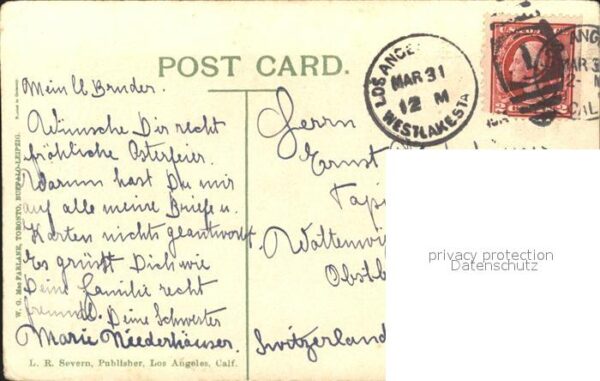 POST CARD.
Mein lb Bruder.
Wünsche Dir recht
fröhliche Osterfeier.
Warum hast Du mir
auf alle meine Briefe u.
Karten nicht geantwortet.
Es grüßt Dich wie
Deine Familie recht
freundl. Deine Schwester
Marie Niederhäuser.
L. R. Severn, Publisher, Los Angeles, Calif.
W. G. MacFARLANE, TORONTO, BUFFALO-LEIPZIG.
Printed in Germany
LOS ANGE
MAR 31
12 M
WESTLAKE STA
ANGE
MAR 3
2- M
CAL
2 2
Herrn
Ernst
Tapi
Wattenwi
Obstb
Switzerland
privacy protection
Datenschutz